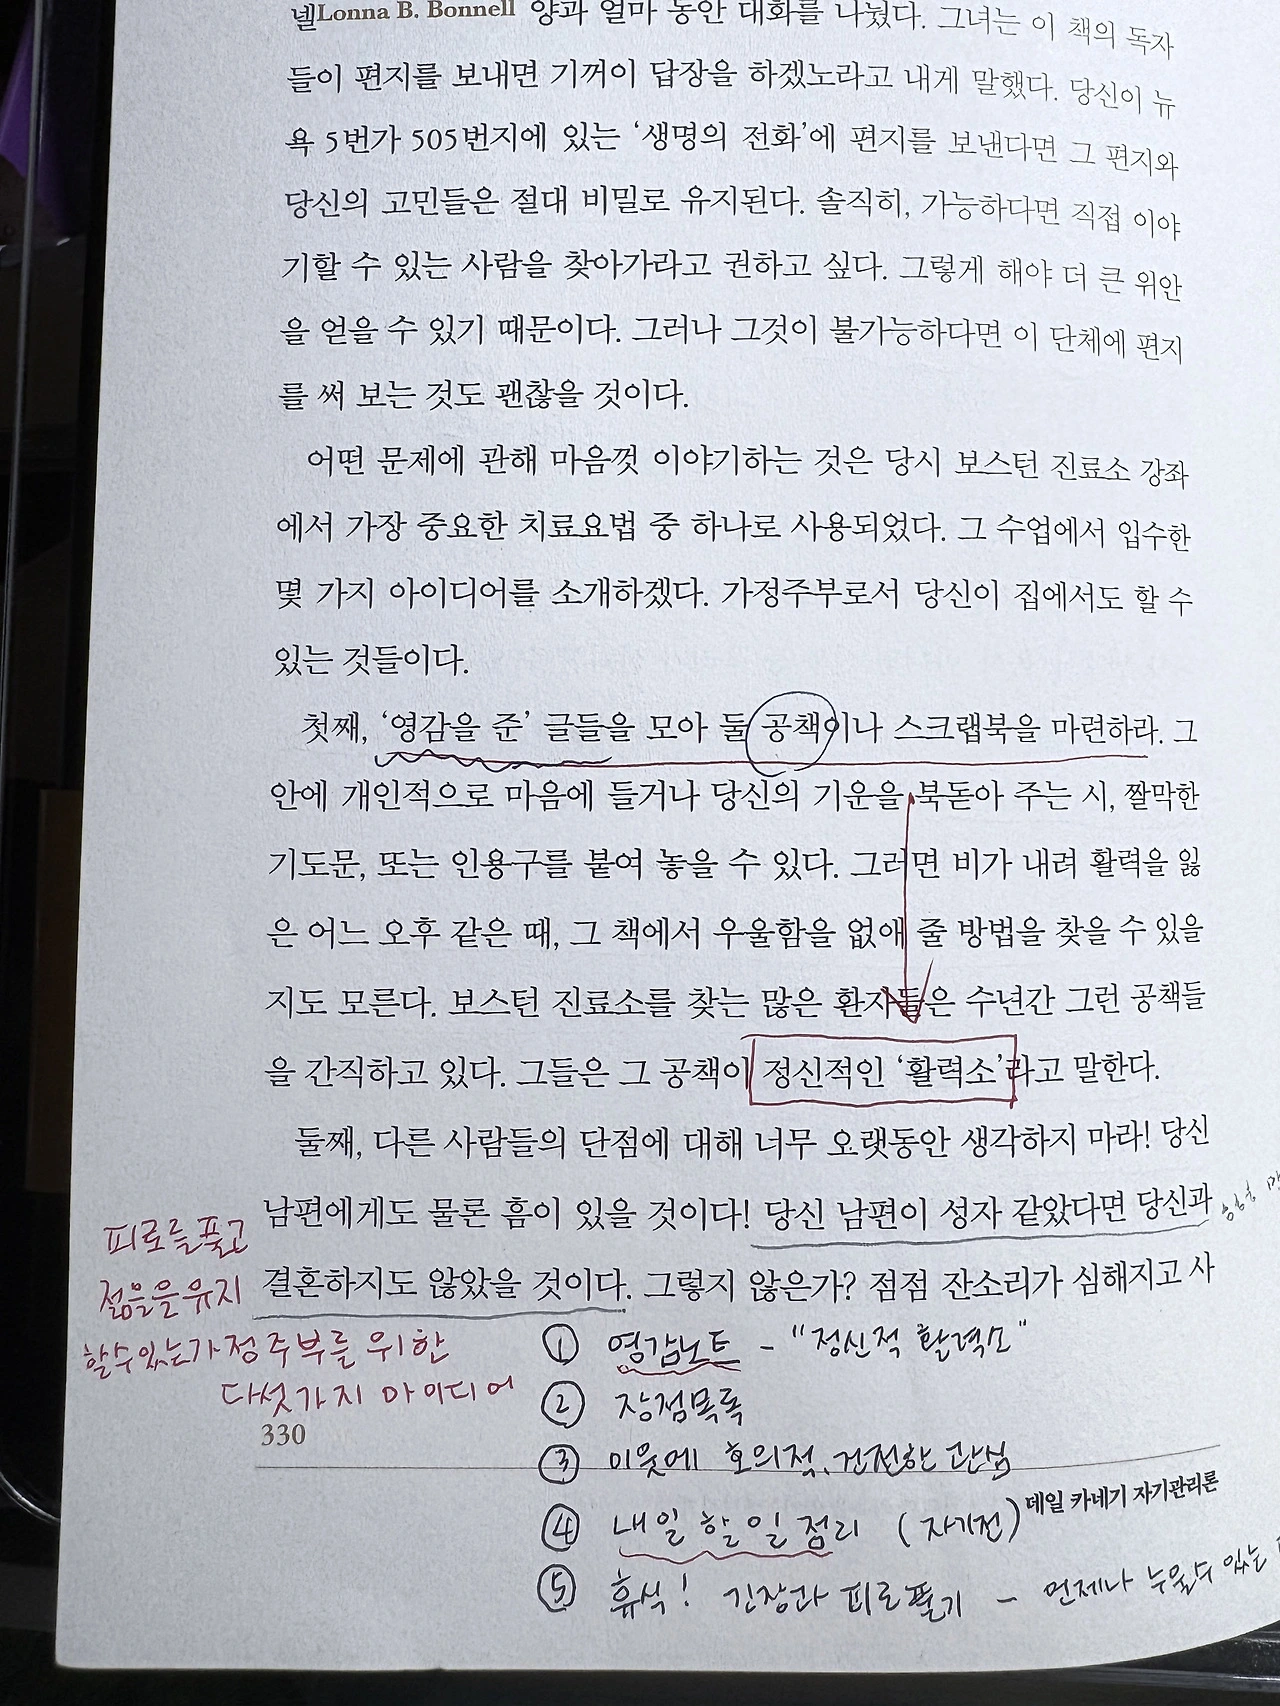 넬Lonna B. Bonnell 양과 얼마 동안 대화를 나눴다. 그녀는 이 책의 독자
들이 편지를 보내면 기꺼이 답장을 하겠노라고 내게 말했다. 당신이 뉴
욕 5번가 505번지에 있는 ‘생명의 전화’에 편지를 보낸다면 그 편지와
당신의 고민들은 절대 비밀로 유지된다. 솔직히, 가능하다면 직접 이야
기할 수 있는 사람을 찾아가라고 권하고 싶다. 그렇게 해야 더 큰 위안
을 얻을 수 있기 때문이다. 그러나 그것이 불가능하다면 이 단체에 편지
를 써 보는 것도 괜찮을 것이다.
어떤 문제에 관해 마음껏 이야기하는 것은 당시 보스턴 진료소 강좌
에서 가장 중요한 치료요법 중 하나로 사용되었다. 그 수업에서 입수한
몇 가지 아이디어를 소개하겠다. 가정주부로서 당신이 집에서도 할 수
있는 것들이다.
첫째, ‘영감을 준’ 글들을 모아 둘 공책이나 스크랩북을 마련하라. 그
안에 개인적으로 마음에 들거나 당신의 기운을 북돋아 주는 시, 짤막한
기도문, 또는 인용구를 붙여 놓을 수 있다. 그러면 비가 내려 활력을 잃
은 어느 오후 같은 때, 그 책에서 우울함을 없애 줄 방법을 찾을 수 있을
지도 모른다. 보스턴 진료소를 찾는 많은 환자들은 수년간 그런 공책들
을 간직하고 있다. 그들은 그 공책이 정신적인 ‘활력소’라고 말한다.
둘째, 다른 사람들의 단점에 대해 너무 오랫동안 생각하지 마라! 당신
남편에게도 물론 흠이 있을 것이다! 당신 남편이 성자 같았다면 당신과
결혼하지도 않았을 것이다. 그렇지 않은가? 점점 잔소리가 심해지고 사
피로를 풀고
젊음을 유지
할 수 있는 가정주부를 위한
다섯가지 아이디어
① 영감노트 - "정신적 활력소"
② 장점목록
③ 이웃에 호의적, 건전한 관심
④ 내일 할 일 정리 (자기전)
⑤ 휴식! 긴장과 피로 풀기 - 언제나 누울수 있는
330
데일 카네기 자기관리론